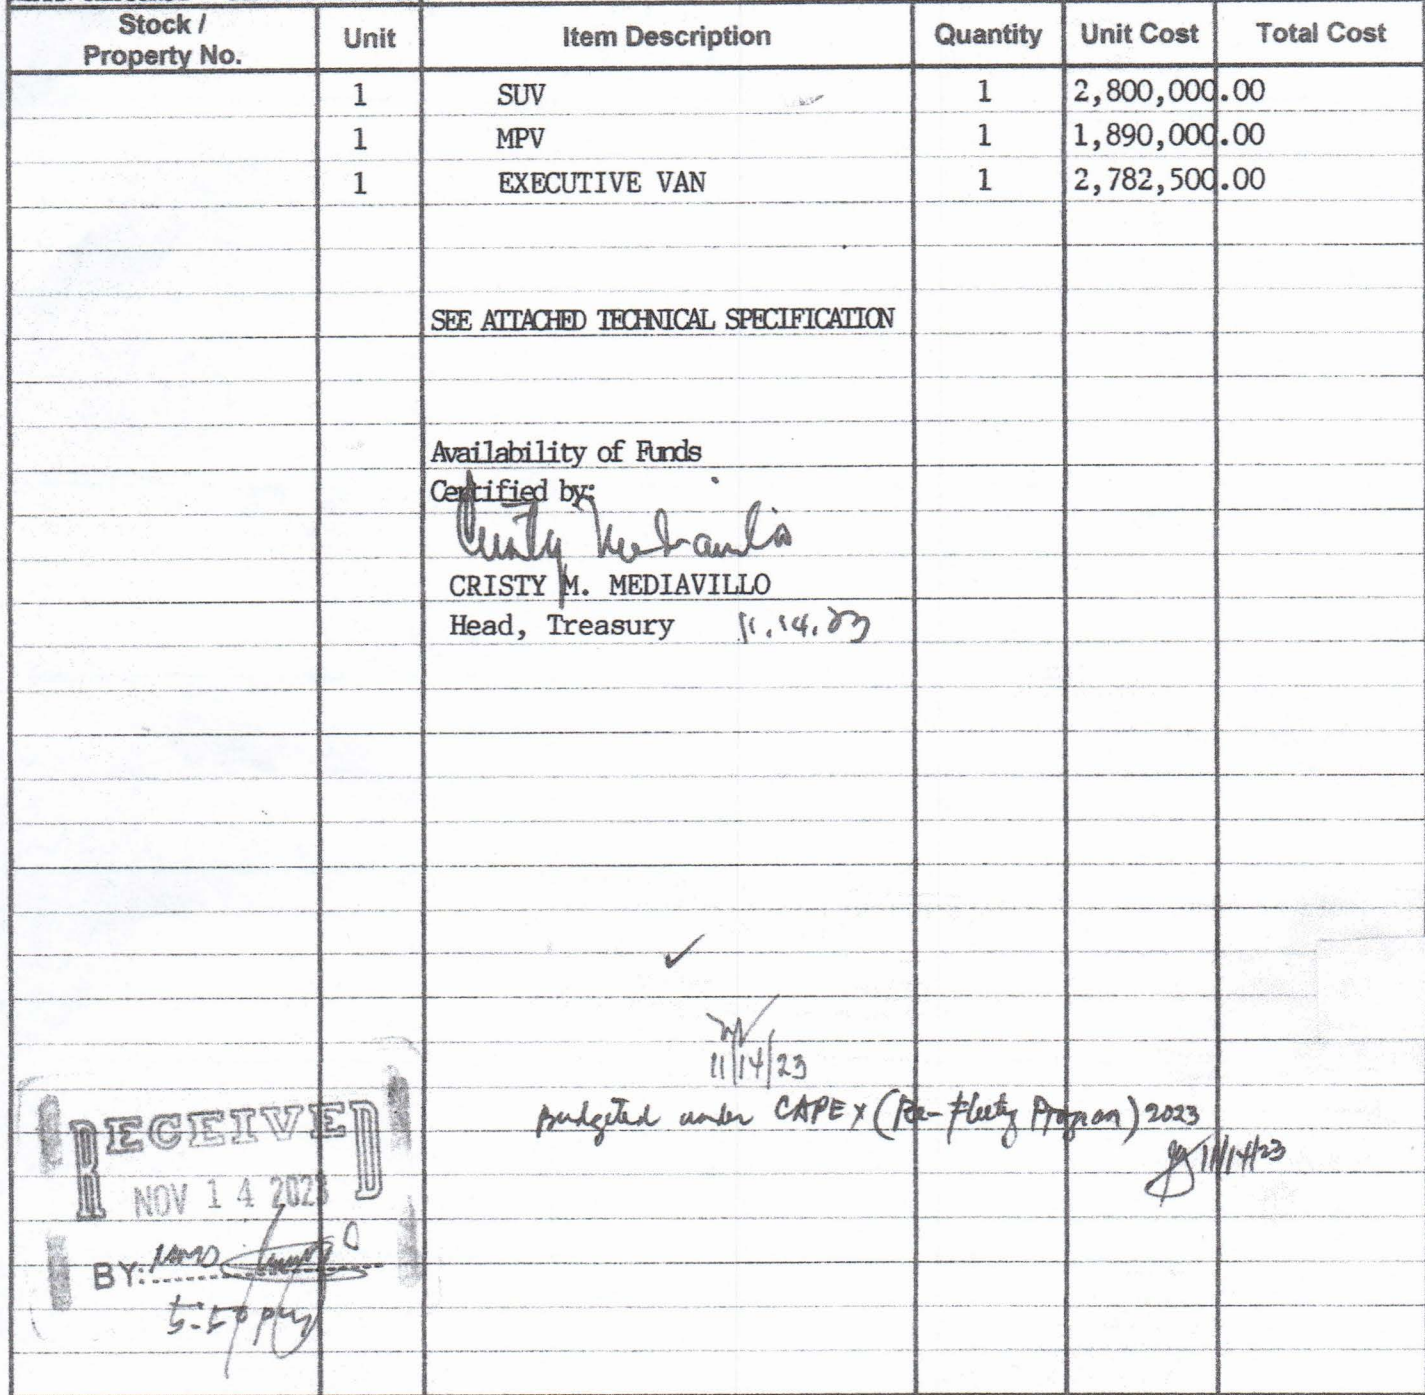 Stock / Property No. Unit Item Description Quantity Unit Cost Total Cost
1 SUV 1 2,800,000.00
1 MPV 1 1,890,000.00
1 EXECUTIVE VAN 1 2,782,500.00
SEE ATTACHED TECHNICAL SPECIFICATION
Availability of Funds
Certified by:
CRISTY M. MEDIAVILLO
Head, Treasury 11.14.23
11/14/23
Budgeted under CAPEX (Re-fleeting Program) 2023
11/14/23
RECEIVED
NOV 14 2023
BY: